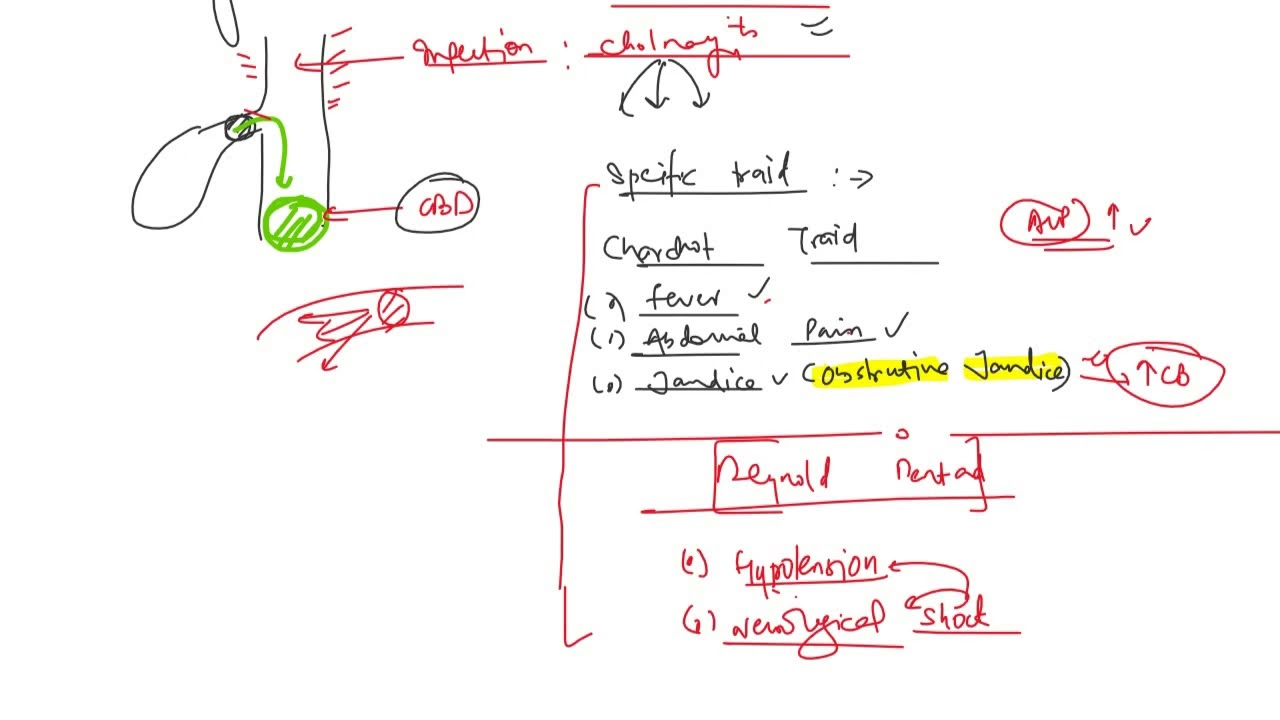 Infection : Cholnagits
CBD
Spcific traid : →
Charchot Traid
ALP ↑ ✓
(1) fever ✓
(1) Abdominel Pain ✓
(0) Jandice ✓ (Obstrutive Jandice) → ↑ CB
Reynold Pentad
(1) Hypotension
(2) neurological shock